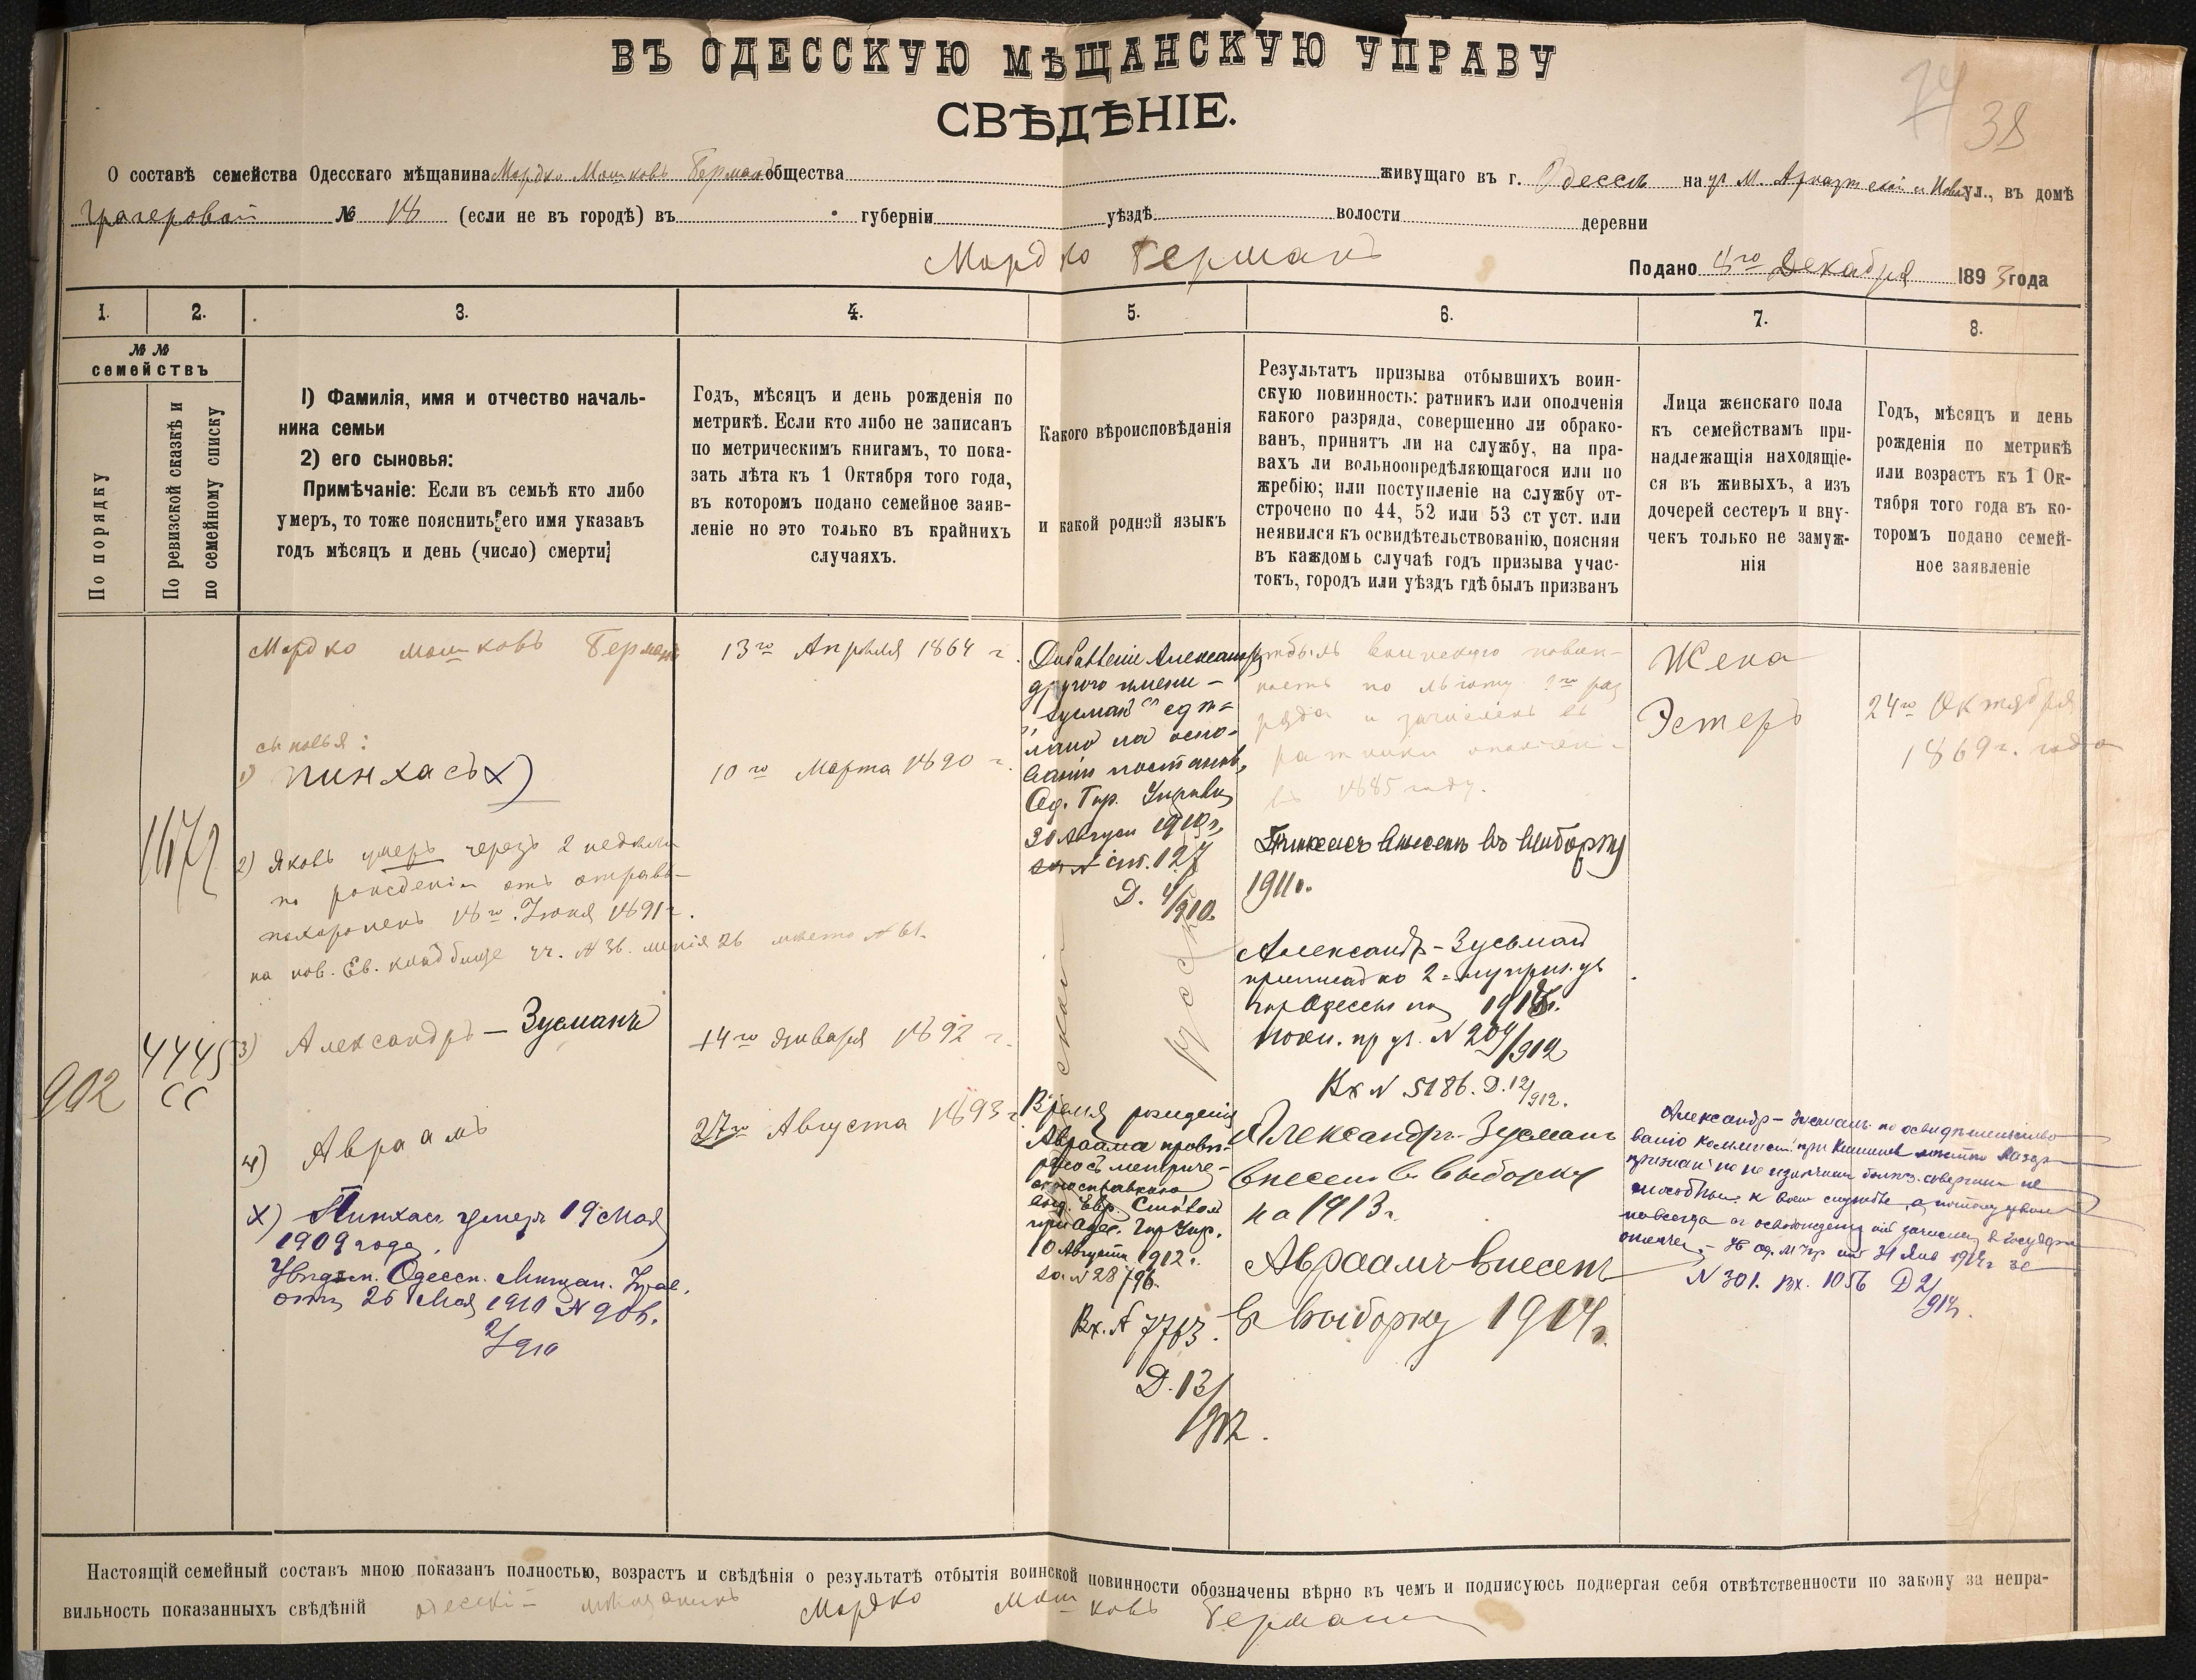 ВЪ ОДЕССКУЮ МѢЩАНСКУЮ УПРАВУ
СВѢДѢНІЕ.
74
38
О составѣ семейства Одесскаго мѣщанина Мордко Мошковъ Германъ общества живущаго въ г. Одессѣ на уг М. Арнаутской и ул., въ домѣ
№ 18 (если не въ городѣ) въ губерніи уѣздѣ волости деревни
Мордко Германъ
Подано 4го Декабря 1893 года
1. 2. 3. 4. 5. 6. 7. 8.
№ № семействъ
По порядку
По ревизской сказкѣ и
по семейному списку
1) Фамилія, имя и отчество началь-
ника семьи
2) его сыновья:
Примѣчаніе: Если въ семьѣ кто либо
умеръ, то тоже пояснить его имя указавъ
годъ мѣсяцъ и день (число) смерти
Годъ, мѣсяцъ и день рожденія по
метрикѣ. Если кто либо не записанъ
по метрическимъ книгамъ, то пока-
зать лѣта къ 1 Октября того года,
въ которомъ подано семейное заяв-
леніе но это только въ крайнихъ
случаяхъ.
Какого вѣроисповѣданія
и какой родной языкъ
Результатъ призыва отбывшихъ воин-
скую повинность: ратникъ или ополченія
какого разряда, совершенно ли обрако-
ванъ, принятъ ли на службу, на пра-
вахъ ли вольноопредѣляющагося или по
жребію; или поступленіе на службу от-
строчено по 44, 52 или 53 ст уст. или
неявился къ освидѣтельствованію, поясняя
въ каждомъ случаѣ годъ призыва учас-
токъ, городъ или уѣздъ гдѣ былъ призванъ
Лица женскаго пола
къ семействамъ при-
надлежащія находящіе-
ся въ живыхъ, а изъ
дочерей сестеръ и вну-
чекъ только не замуж-
нія
Годъ, мѣсяцъ и день
рожденія по метрикѣ
или возрастъ къ 1 Ок-
тября того года въ ко-
торомъ подано семей-
ное заявленіе
902
1172
4445
СС
Мордко Мошковъ Германъ
сыновья:
1) Пинхасъ х)
2) Яковъ умеръ черезъ 2 недѣли
по рожденіи отъ
похороненъ 18го Іюня 1891 г.
на нов. Ев. кладбище № 36. линія 26 место № 61.
3) Александръ – Зусманъ
4) Авраамъ
х) Пинхасъ умеръ 19 Мая
1909 года.
Одесск. Мѣщан. Упр.
отъ 26 Мая 1910 № 906.
13го Апрѣля 1864 г.
10го Марта 1890 г.
14го Января 1892 г.
27го Августа 1893 г.
Добавленіе Александру
другого имени –
"Зусманъ" сдѣ-
лано на осно-
ваніи постановл.
Од. Гор. Управы
30 Августа 1910 г.
ст. 127
Д. 4/910.
Время рожденія
Авраама провѣ-
рено съ метриче-
при Одес. Гор. Упр.
10 Августа 1912 г.
за № 28796.
Вх. № 7763.
Д. 13/
1912.
отбылъ воинскую повин-
ность по льготу 1го раз
ряда и зачисленъ въ
ратники ополчен-
въ 1885 году.
Пинхасъ внесенъ въ выборку
1911 г.
Александръ – Зусьманъ
ко 2 – му приз. уч
гор Одессы на 1913 г.
№ 204/912
Вх № 5186. Д. 12/912.
Александръ – Зусманъ
внесенъ въ выборку
на 1913 г.
Авраамъ внесенъ
въ выборку 1914 г.
Жена
Эстеръ
24го Октября
1869 г. года
Александръ – Зусманъ по освидѣтельство
ванію
способнымъ къ воен службѣ, а потому
навсегда освобожденъ отъ
31 Янв 1914 г за
№ 301. Вх. 1056 Д 2/914.
Настоящій семейный составъ мною показанъ полностью, возрастъ и свѣдѣнія о результатѣ отбытія воинской повинности обозначены вѣрно въ чемъ и подписуюсь подвергая себя отвѣтственности по закону за непра-
вильность показанныхъ свѣдѣній одесскій мѣщанинъ Мордко Мошковъ Германъ